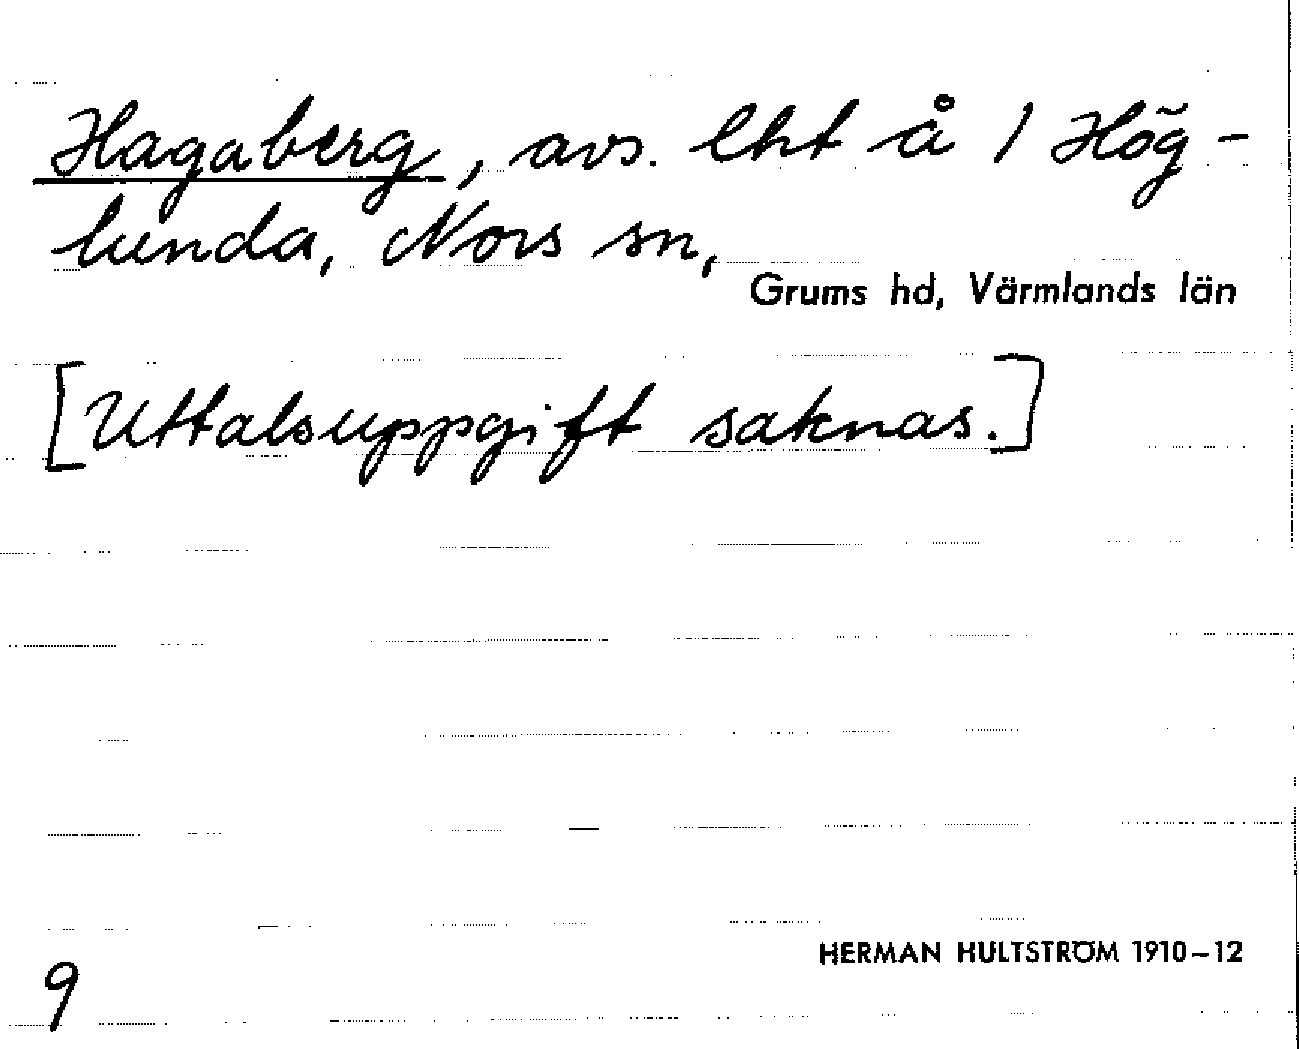 Hagaberg, avs. lht å 1 Hög-
lunda, Nors sn,
Grums hd, Värmlands län
[Uttalsuppgift saknas.]
HERMAN HULTSTRÖM 1910–12
9